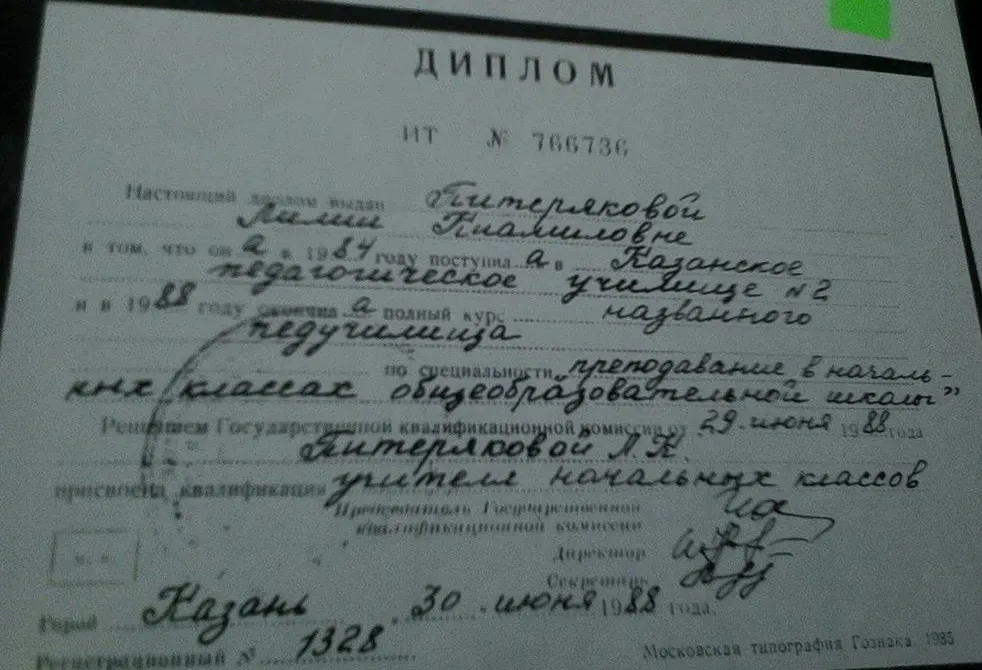 ДИПЛОМ
ИТ № 766736
Настоящий диплом выдан Питеряковой
Лилии Киамиловне
в том, что он а в 1984 году поступил а в Казанское
педагогическое училище №2
и в 1988 году окончил а полный курс названного
педучилища
по специальности „преподавание в началь-
ных классах общеобразовательной школы”
Решением Государственной квалификационной комиссии от 29 июня 1988 года
Питеряковой Л.К.
присвоена квалификация учителя начальных классов
Председатель Государственной
квалификационной комиссии
Директор
Секретарь
М. П.
Город Казань, 30 июня 1988 года.
Регистрационный № 1328
Московская типография Гознака. 1985